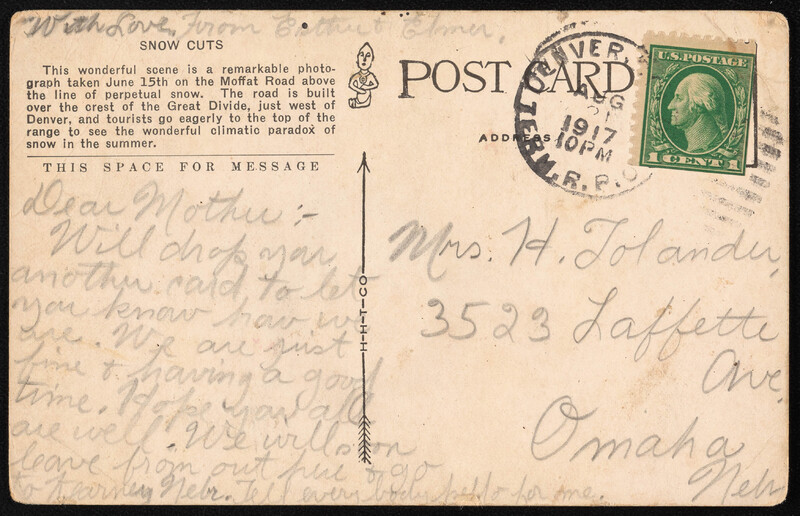 With Love, From Esther & Elmer.
SNOW CUTS
This wonderful scene is a remarkable photo-
graph taken June 15th on the Moffat Road above
the line of perpetual snow. The road is built
over the crest of the Great Divide, just west of
Denver, and tourists go eagerly to the top of the
range to see the wonderful climatic paradox of
snow in the summer.
THIS SPACE FOR MESSAGE
Dear Mother:-
Will drop you
another card to let
you know how we
are. We are just
fine & having a good
time. Hope you all
are well. We will soon
leave from out here & go
to Kearney Nebr. Tell everybody hello for me.
H-H-T-CO
POST CARD
ADDRESS
DENVER.
AUG
1917
10PM
R.P.O.
U.S. POSTAGE
1 CENT 1
Mrs. H. Tolander,
3523 Laffette
Ave.
Omaha
Nebr